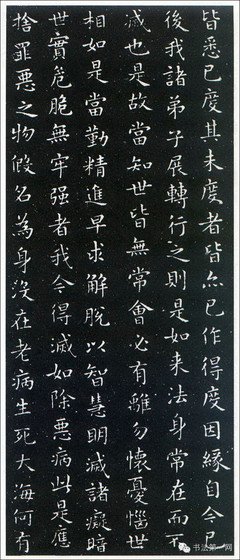 皆悉已度其未度者皆亦已作得度因緣自今已
後我諸弟子展轉行之則是如来法身常在而不
滅也是故當知世皆無常會必有離勿懷憂惱世
相如是當勤精進早求解脱以智慧明滅諸癡暗
世實危脆無牢强者我今得滅如除惡病此是應
捨罪惡之物假名為身沒在老病生死大海何有
书法第一网